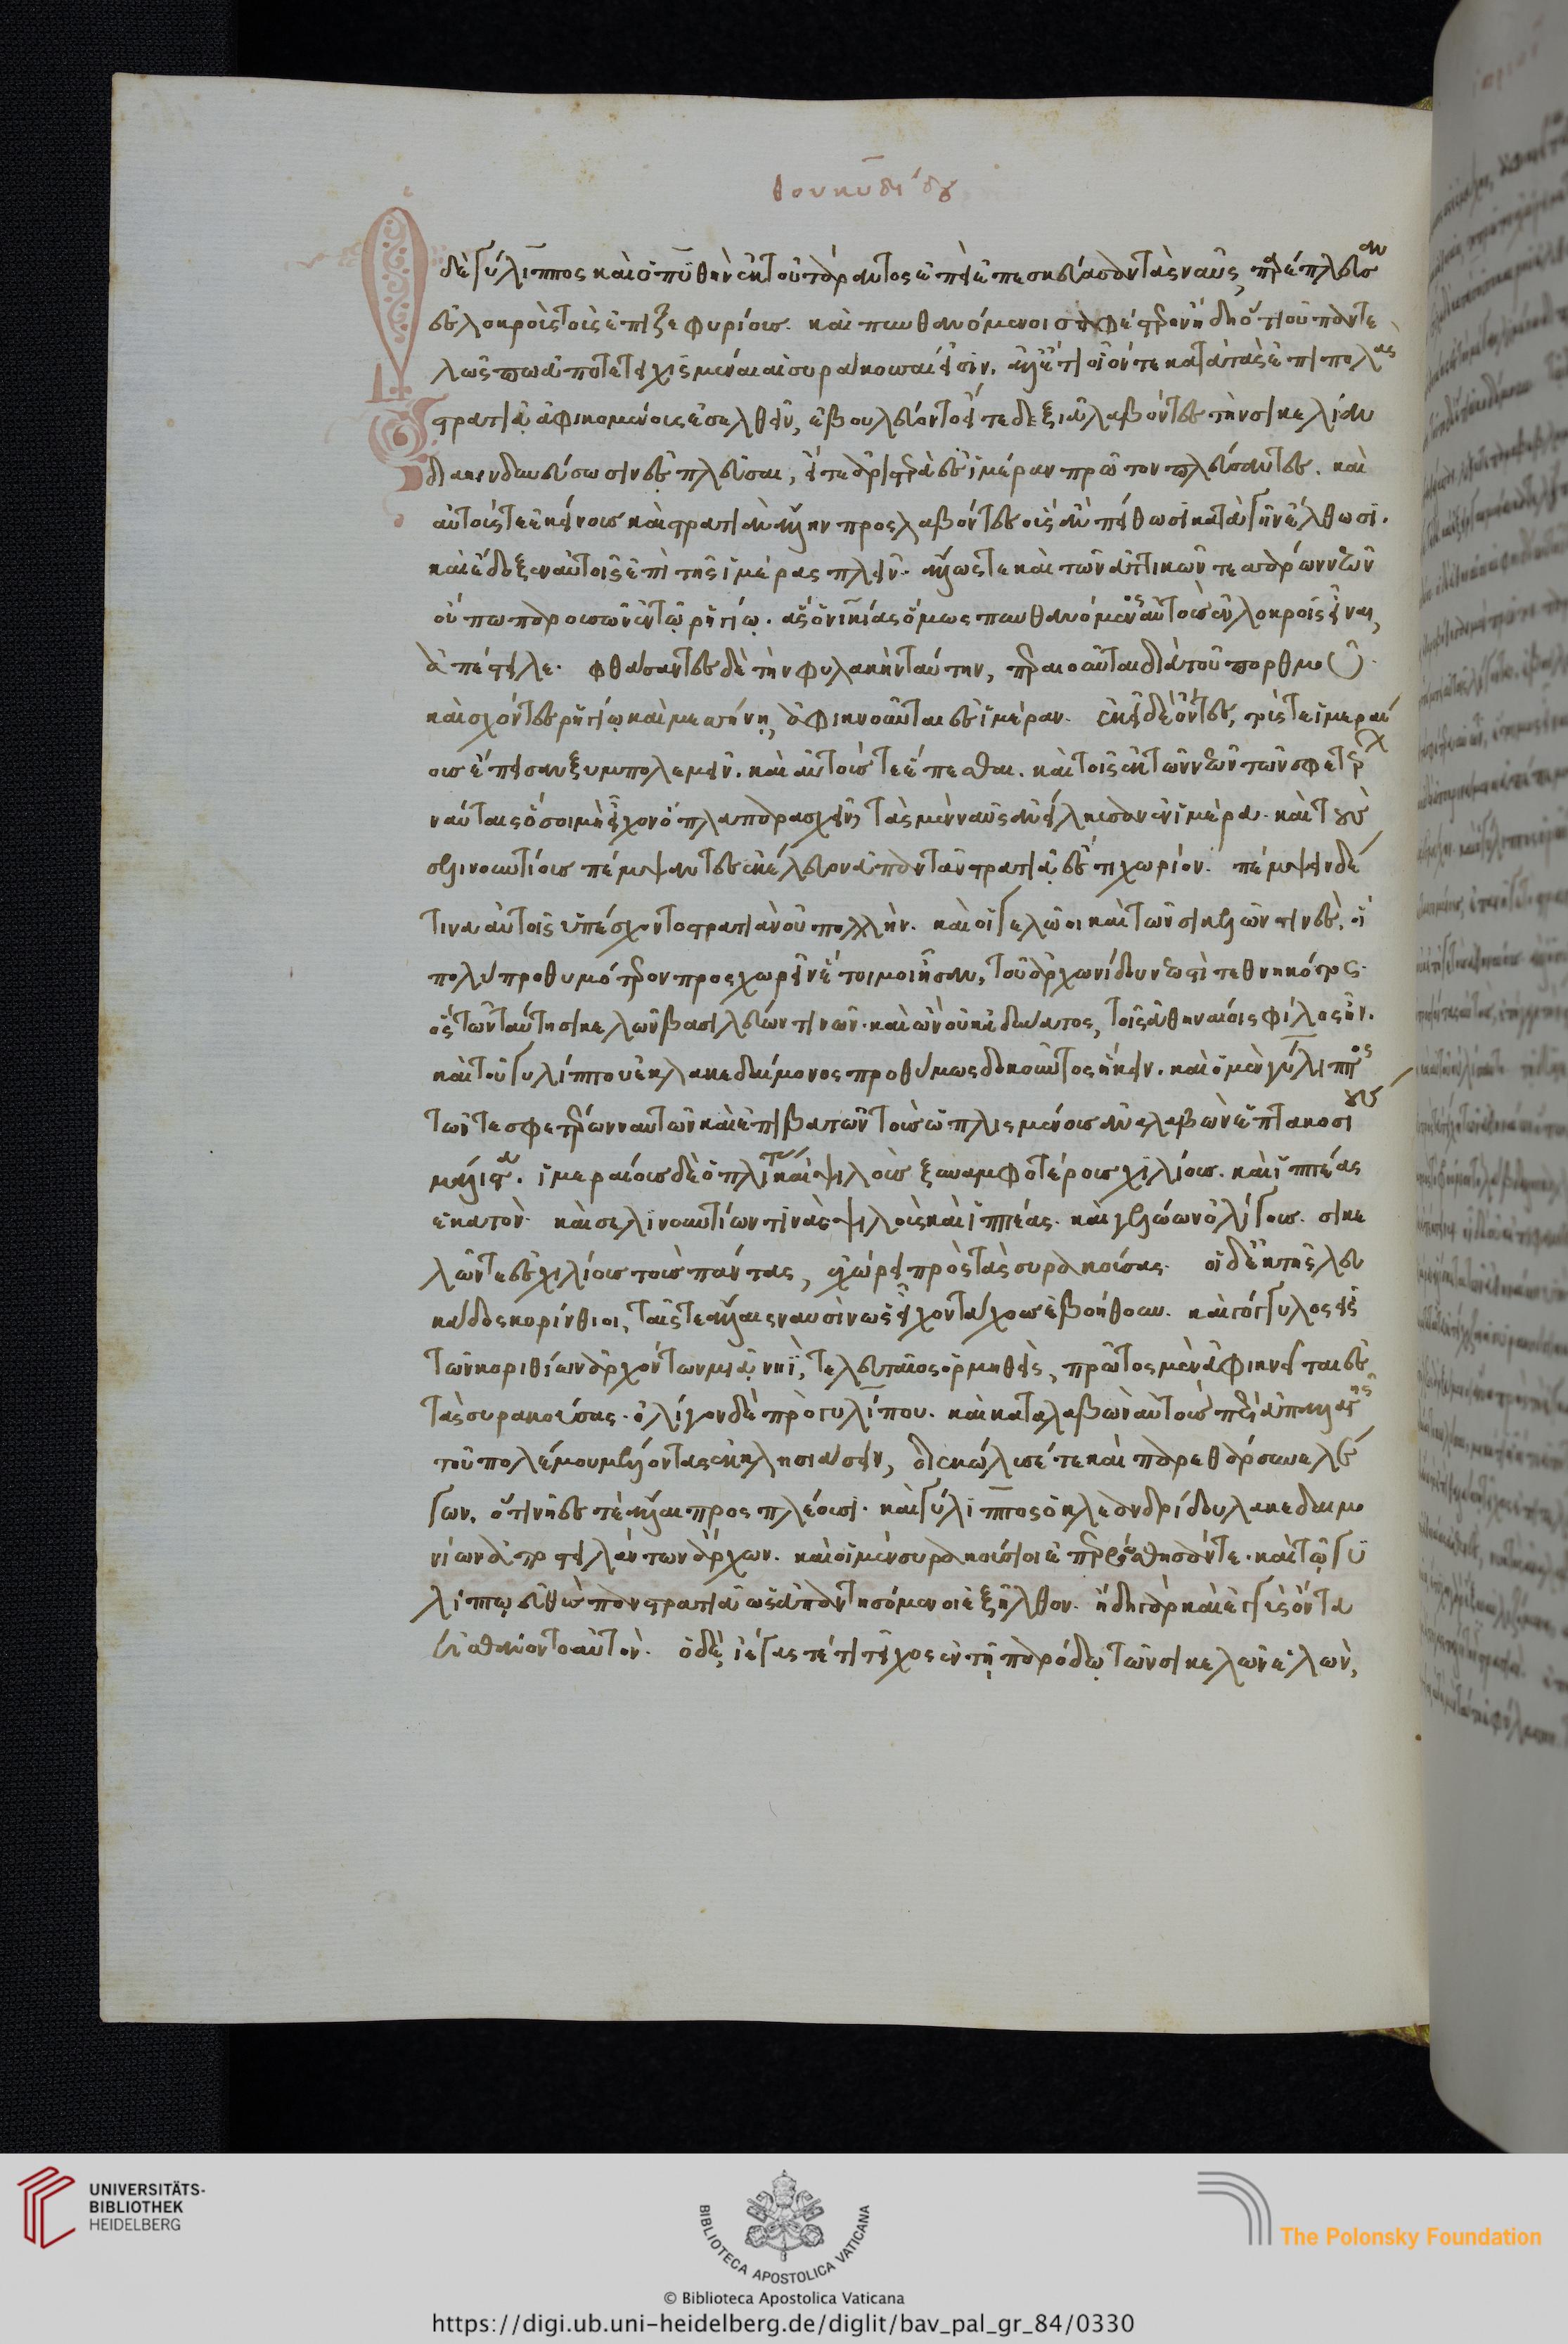 θουκυδίδου
Ὁ δὲ γύλιππος καὶ ὁ πυθὴν ἐκ τοῦ τάραντος ἐπεὶ ἐπεσκεύασαν τὰς ναῦς, παρέπλευσαν
ἐς λοκροὺς τοὺς ἐπιζεφυρίους. καὶ πυνθανόμενοι σαφέστερον ἤδη ὅτι οὐ παντε
λῶς πω ἀποτετειχισμέναι αἱ συράκουσαί εἰσιν, ἀλλ' ἔτι οἷόν τε κατὰ τὰς ἐπιπολὰς
στρατιᾷ ἀφικομένους ἐσελθεῖν, ἐβουλεύοντο εἴτε δεξιᾷ λαβόντες τὴν σικελίαν
διακινδυνεύσωσιν ἐσπλεῦσαι, εἴτε ἀριστερᾷ ἐς ἱμέραν πρῶτον πλεύσαντες. καὶ
αὐτούς τε ἐκείνους καὶ στρατιὰν ἄλλην προσλαβόντες οὓς ἂν πείθωσι κατὰ γῆν ἔλθωσι.
καὶ ἔδοξεν αὐτοῖς ἐπὶ τῆς ἱμέρας πλεῖν. ἄλλως τε καὶ τῶν ἀττικῶν τεσσάρων νεῶν
οὔπω παρουσῶν ἐν τῷ ῥηγίῳ. ἃς ὁ νικίας ὅμως πυνθανόμενος αὐτοὺς ἐν λοκροῖς εἶναι,
ἀπέστειλε. φθάσαντες δὲ τὴν φυλακὴν ταύτην, περαιοῦνται διὰ τοῦ πορθμοῦ.
καὶ σχόντες ῥηγίῳ καὶ μεσσήνῃ, ἀφικνοῦνται ἐς ἱμέραν. ἐκεῖ δὲ ὄντες, τούς τε ἱμεραί
ους ἔπεισαν ξυμπολεμεῖν. καὶ αὐτούς τε ἕπεσθαι. καὶ τοῖς ἐκ τῶν νεῶν τῶν σφετέρων
ναύταις ὅσοι μὴ εἶχον ὅπλα παρασχεῖν, τὰς μὲν ναῦς ἀνείλκυσαν ἐν ἱμέρᾳ. καὶ τοὺς
σελινουντίους πέμψαντες ἐκέλευον ἀπαντᾶν στρατιᾷ ἔς τι χωρίον. πέμψειν δέ
τινα αὐτοῖς ὑπέσχοντο στρατιὰν οὐ πολλὴν. καὶ οἱ γελῷοι καὶ τῶν σικελῶν τινες. οἳ
πολὺ προθυμότερον προσχωρεῖν ἑτοῖμοι ἦσαν, τοῦ ἀρχωνίδου νεωστὶ τεθνηκότος.
ὃς τῶν ταύτῃ σικελῶν βασιλεύων τινῶν. καὶ ὢν οὐκ ἀδύνατος, τοῖς ἀθηναίοις φίλος ἦν.
καὶ τοῦ γυλίππου ἐκ λακεδαίμονος προθύμως δοκοῦντος ἥκειν. καὶ ὁ μὲν γύλιππος
τῶν τε σφετέρων ναυτῶν καὶ ἐπιβατῶν τοὺς ὡπλισμένους ἀναλαβὼν ἑπτακοσίους
μάλιστα. ἱμεραίους δὲ ὁπλίτας καὶ ψιλοὺς ξυναμφοτέρους χιλίους. καὶ ἱππέας
ἑκατὸν. καὶ σελινουντίων τινὰς ψιλοὺς καὶ ἱππέας. καὶ γελώων ὀλίγους. σικε
λῶν τε ἐς χιλίους τοὺς πάντας, ἐχώρει πρὸς τὰς συρακούσας. οἱ δ' ἐκ τῆς λευ
κάδος κορίνθιοι, ταῖς τε ἄλλαις ναυσὶν ὡς εἶχον τάχους ἐβοήθουν. καὶ γογγύλος εἷς
τῶν κορινθίων ἀρχόντων μιᾷ νηῒ, τελευταῖος ὁρμηθεὶς, πρῶτος μὲν ἀφικνεῖται ἐς
τὰς συρακούσας. ὀλίγον δὲ πρὸ γυλίππου. καὶ καταλαβὼν αὐτοὺς περὶ ἀπαλλαγῆς
τοῦ πολέμου μέλλοντας ἐκκλησιάσειν, διεκώλυσέ τε καὶ παρεθάρσυνε λέ
γων, ὅτι νῆές τε ἄλλαι προσπλέουσι. καὶ γύλιππος ὁ κλεανδρίδου λακεδαιμο
νίων ἀποστειλάντων ἄρχων. καὶ οἱ μὲν συρακούσιοι ἐπερρώσθησάν τε. καὶ τῷ γυ
λίππῳ εὐθὺς πανστρατιᾷ ὡς ἀπαντησόμενοι ἐξῆλθον. ἤδη γὰρ καὶ ἐγγὺς ὄντα
ᾐσθάνοντο αὐτὸν. ὁ δὲ, ἰέγας τέ τι τεῖχος ἐν τῇ παρόδῳ τῶν σικελῶν ἑλὼν,
UNIVERSITÄTS-
BIBLIOTHEK
HEIDELBERG
BIBLIOTECA APOSTOLICA VATICANA
The Polonsky Foundation
© Biblioteca Apostolica Vaticana
https://digi.ub.uni-heidelberg.de/diglit/bav_pal_gr_84/0330